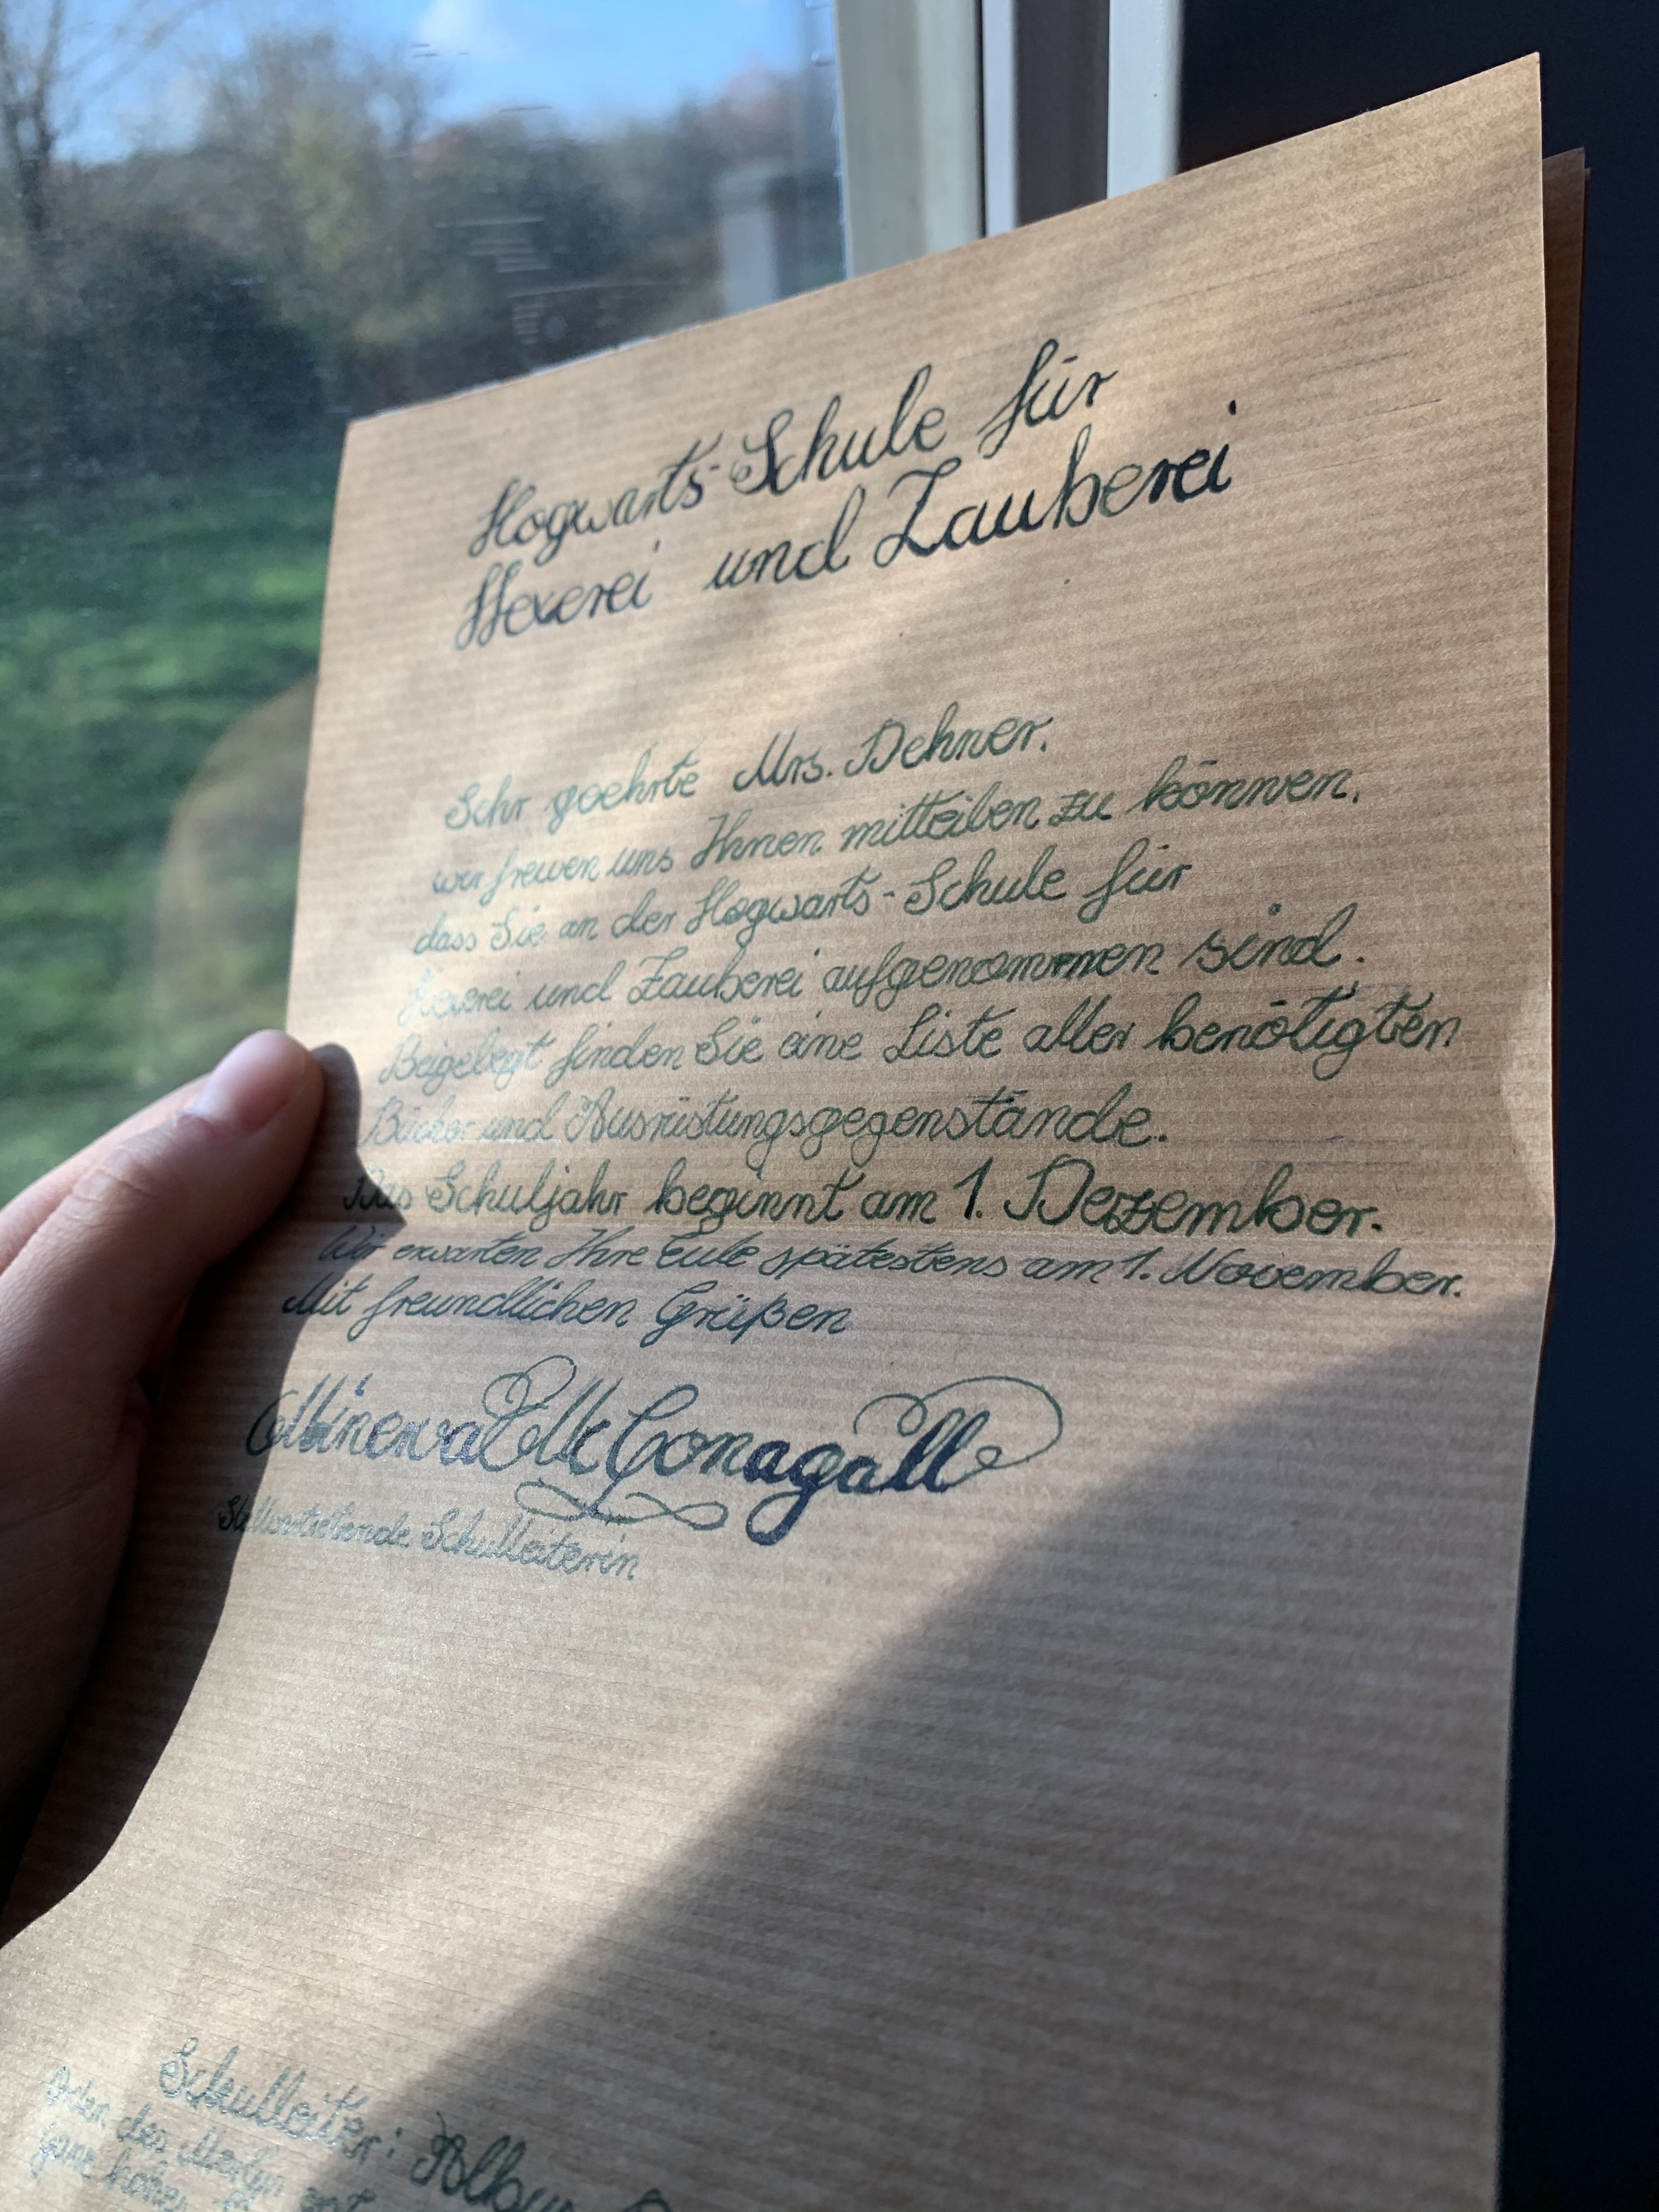 Hogwarts-Schule für
Hexerei und Zauberei
Sehr geehrte Mrs. Dehner.
wir freuen uns Ihnen mitteilen zu können,
dass Sie an der Hogwarts-Schule für
Hexerei und Zauberei aufgenommen sind.
Beigelegt finden Sie eine Liste aller benötigten
Bücher und Ausrüstungsgegenstände.
Das Schuljahr beginnt am 1. Dezember.
Wir erwarten Ihre Eule spätestens am 1. November.
Mit freundlichen Grüßen
Minerva McGonagall
Stellvertretende Schulleiterin
Schulleiter: Albus
Orden des Merlin
ganz hohes